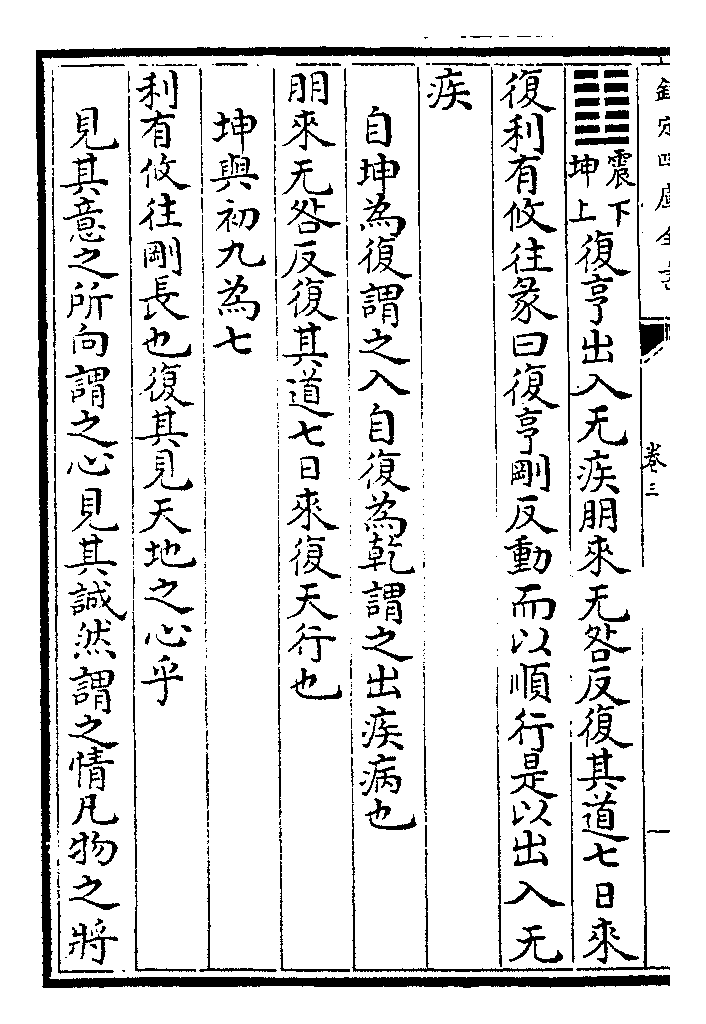 欽定四庫全書
卷三
一
䷗震下坤上復亨出入无疾朋來无咎反復其道七日來
復利有攸往彖曰復亨剛反動而以順行是以出入无
疾
自坤為復謂之入自復為乾謂之出疾病也
朋來无咎反復其道七日來復天行也
坤與初九為七
利有攸往剛長也復其見天地之心乎
見其意之所向謂之心見其誠然謂之情凡物之將